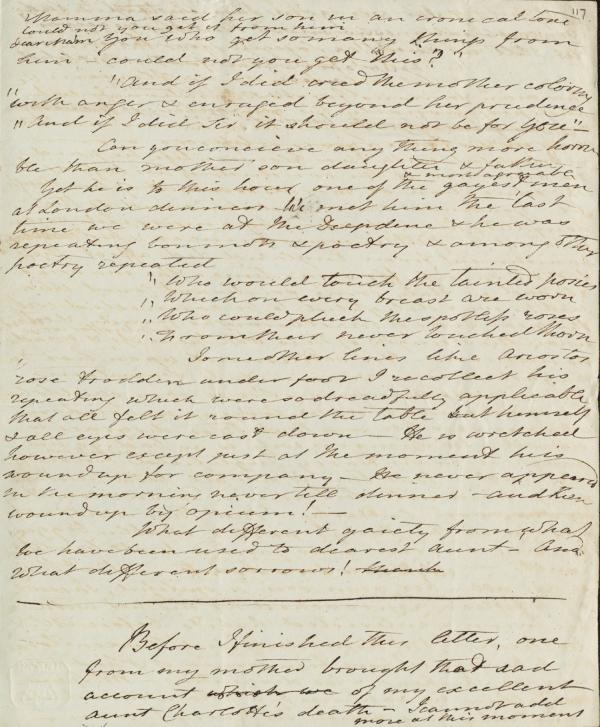 117
Mamma said her son in an ironical tone
could not you get it from him
dear Mam You who get so many things from
him – could not you get this?"
"And if I did cried the mother coloring
" with anger & enraged beyond her prudence
" And if I did Sir it should not be for You"–
Can you concieve any thing more horri
ble than mother son daughter & father
& most agreeable
Yet he is to this hour one of the gayest men
at London dinners We met him the last
time we were at the Deepdene & he was
repeating bon mots & poetry & among other
poetry repeated
" Who would touch the tainted posies
" Which on every breast are worn
" Who could pluck the spotless roses
" From their never touched thorn
Some other lines like Ariostos
rose trodden under foot I recollect his
repeating which were so dreadfully applicable
that all felt it round the table but himself
& all eyes were cast down – He is wretched
however except just at the moment he is
wound up for company – He never appeared
in the morning never till dinner – and then
wound up by opium! –
What different gaiety from what
we have been used to dearest aunt – And
what different sorrows! thank
Before I finished this letter, one
from my mother brought that sad
account which we of my excellent
aunt Charlotte's death – I cannot add
more at this moment